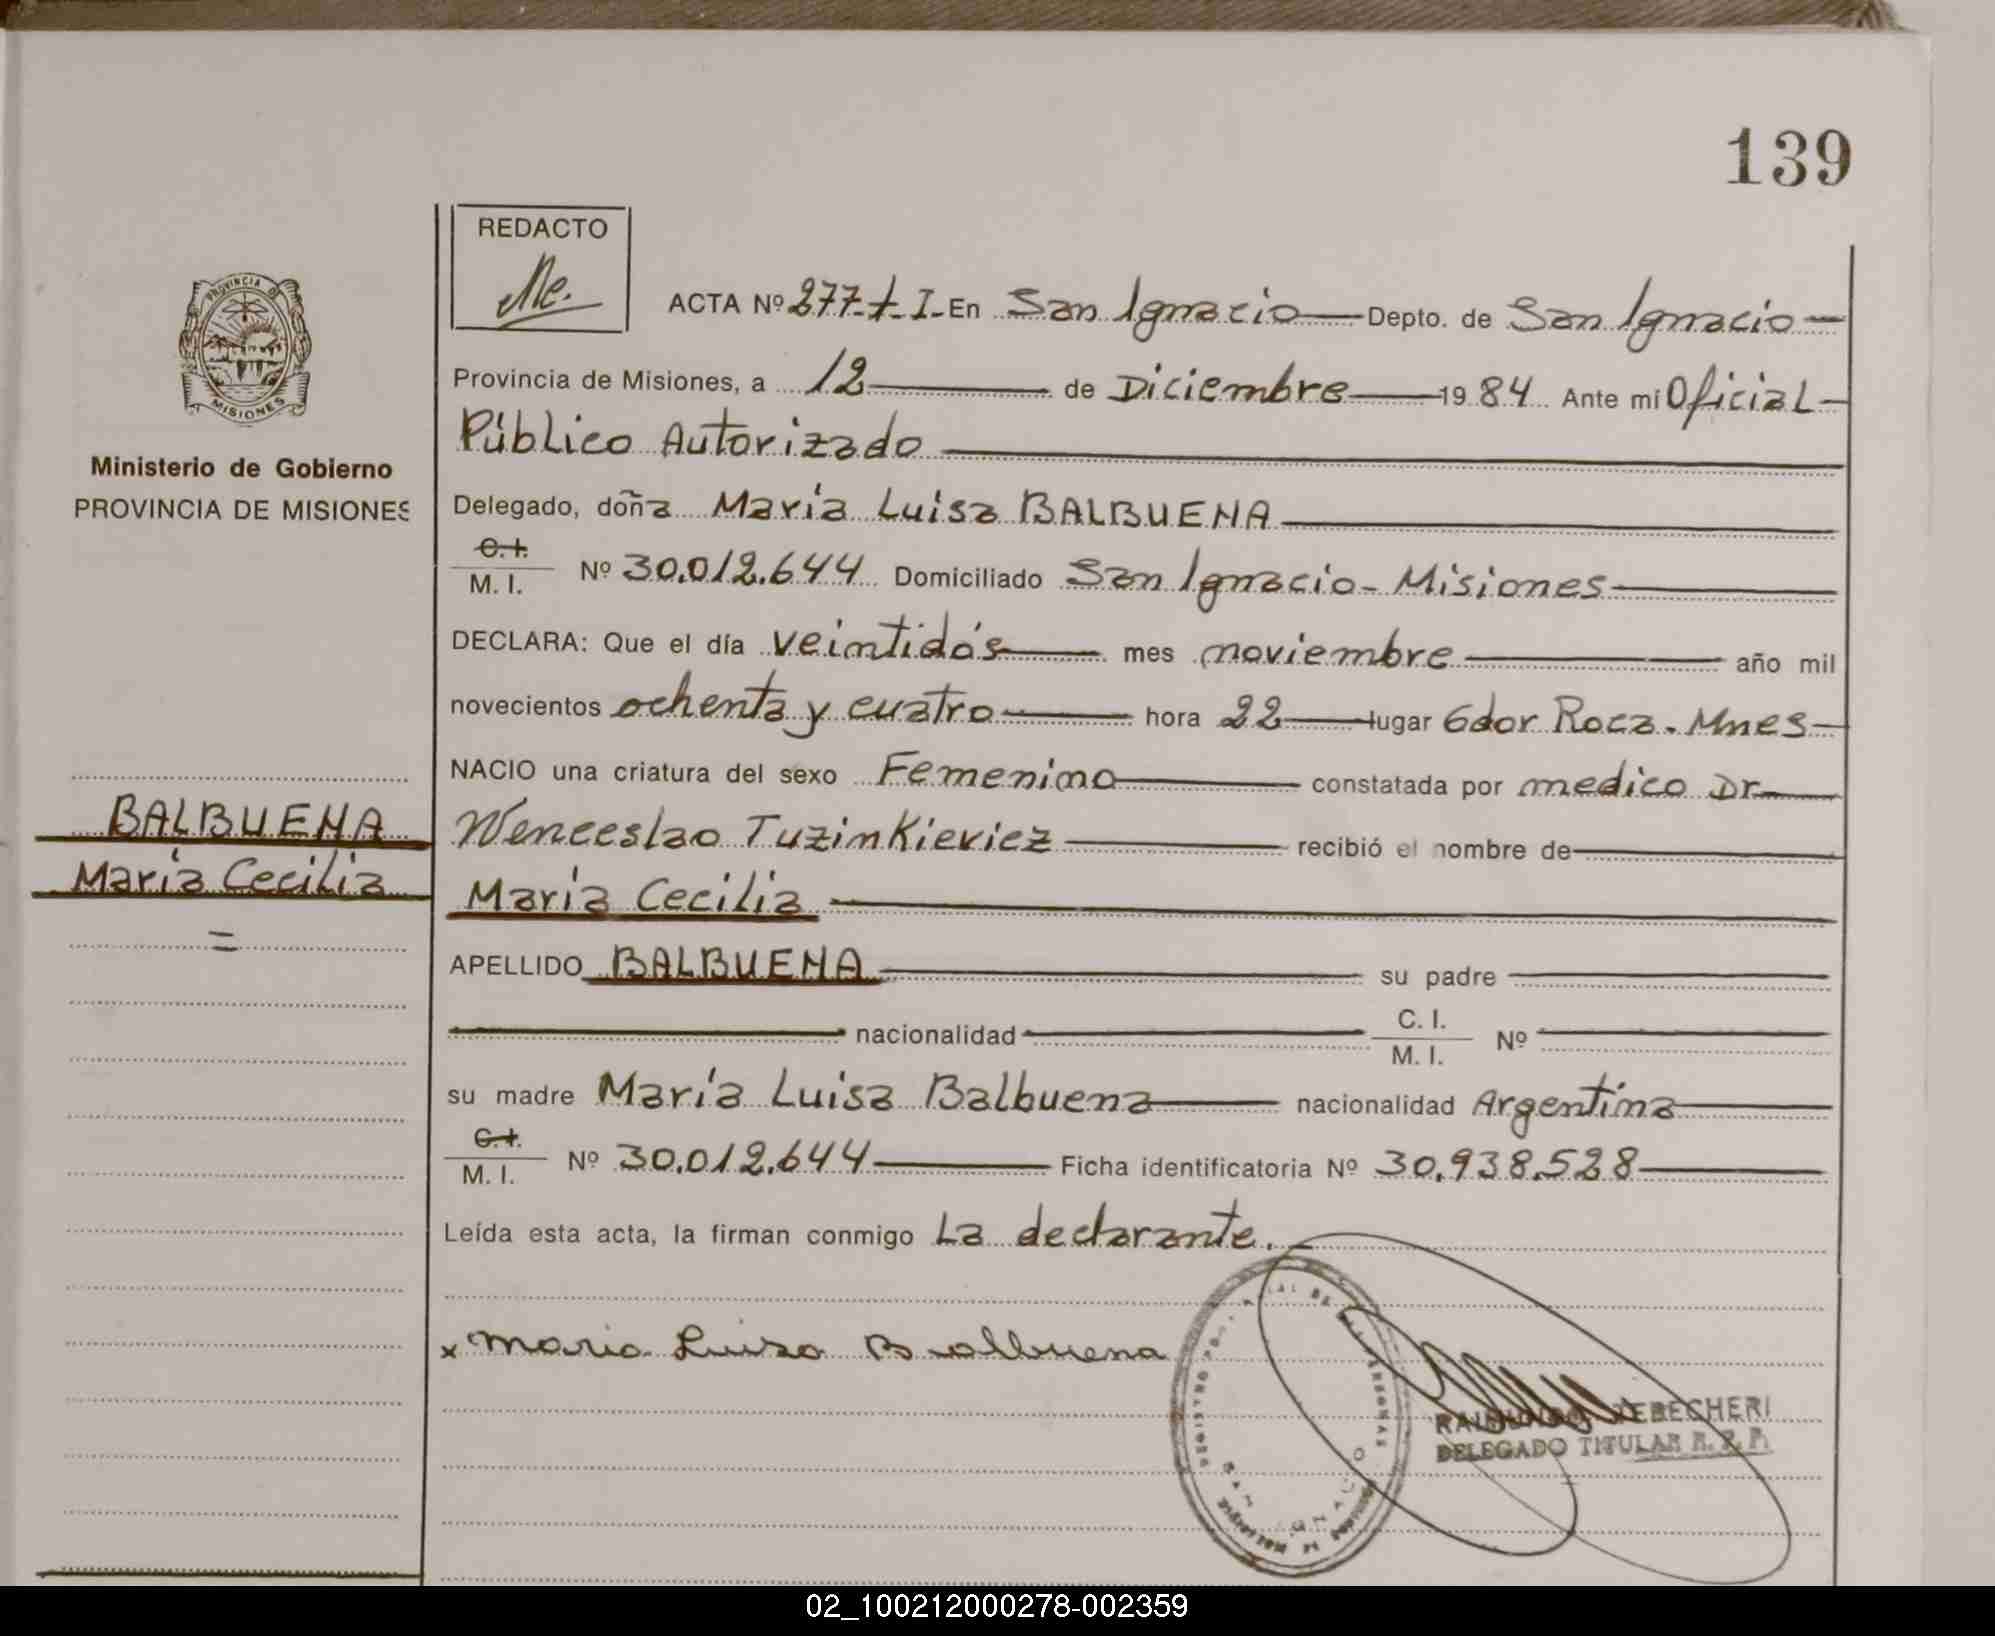 139
REDACTO
PROVINCIA DE
MISIONES
Ministerio de Gobierno
PROVINCIA DE MISIONES
BALBUENA
María Cecilia
=
ACTA Nº 277-I-I- En San Ignacio Depto. de San Ignacio
Provincia de Misiones, a 12 de Diciembre 1984 Ante mí Oficial
Público Autorizado
Delegado, doña María Luisa BALBUENA
C.I. / M. I. Nº 30.012.644 Domiciliado San Ignacio - Misiones
DECLARA: Que el día veintidós mes noviembre año mil
novecientos ochenta y cuatro hora 22 lugar Gdor Roca. Mnes
NACIO una criatura del sexo Femenino constatada por medico Dr
Wenceslao Tuzinkieviez recibió el nombre de
María Cecilia
APELLIDO BALBUENA su padre
nacionalidad C. I. / M. I. Nº
su madre María Luisa Balbuena nacionalidad Argentina
C.I. / M. I. Nº 30.012.644 Ficha identificatoria Nº 30.938.528
Leída esta acta, la firman conmigo La declarante.
x Maria Luisa Balbuena
ZEBECHERI
DELEGADO TITULAR R. P. P.
SAN IGNACIO
02_100212000278-002359